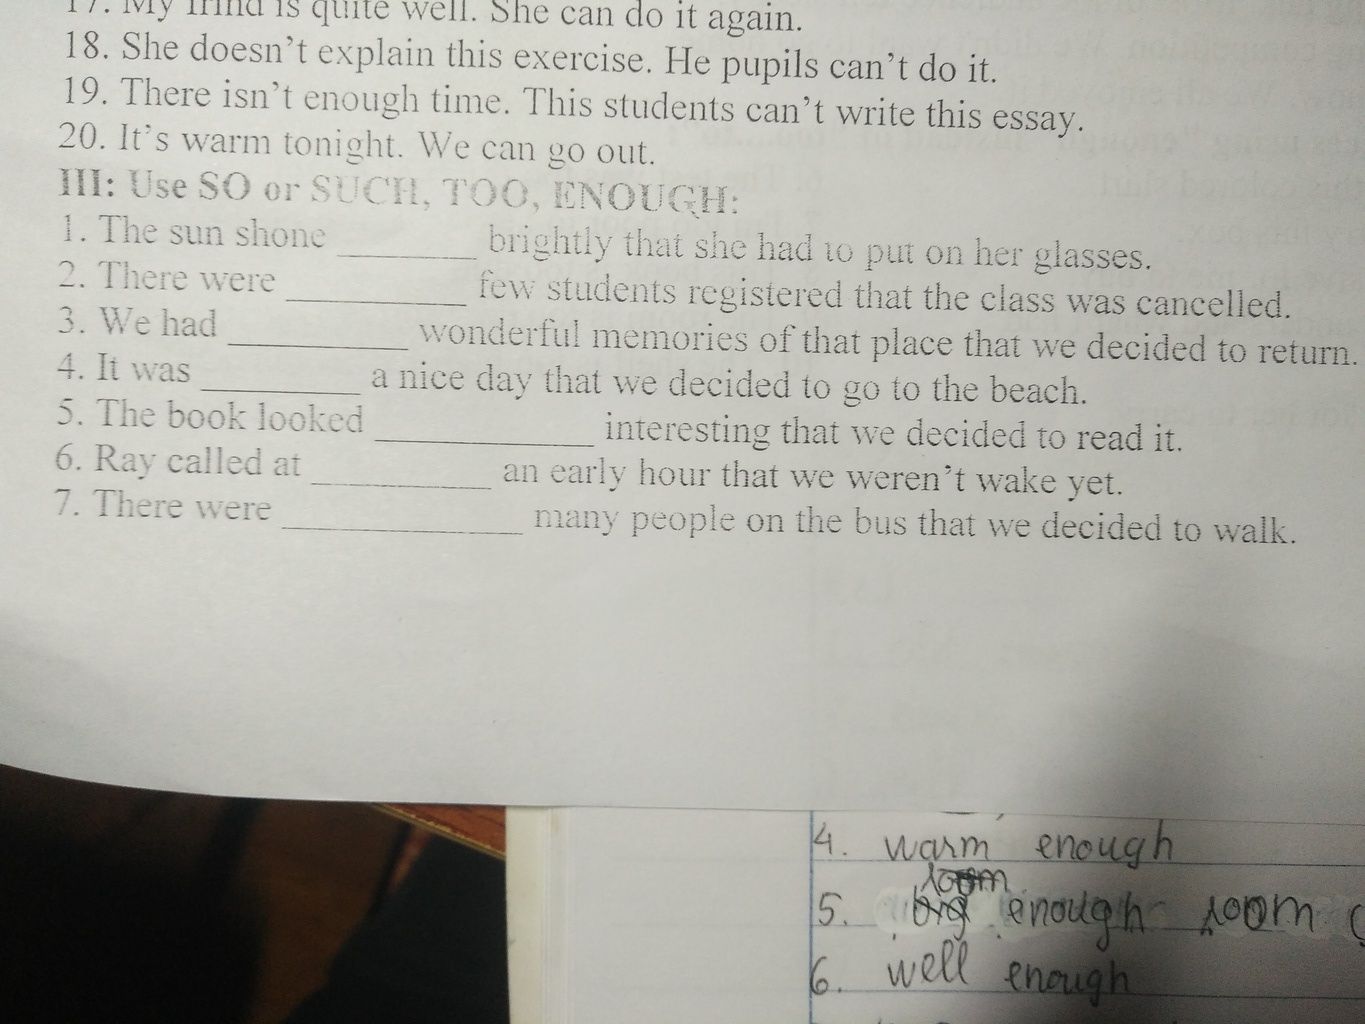 17. My frind is quite well. She can do it again.
18. She doesn't explain this exercise. He pupils can't do it.
19. There isn't enough time. This students can't write this essay.
20. It's warm tonight. We can go out.
III: Use SO or SUCH, TOO, ENOUGH:
1. The sun shone ________ brightly that she had to put on her glasses.
2. There were __________ few students registered that the class was cancelled.
3. We had __________ wonderful memories of that place that we decided to return.
4. It was _________ a nice day that we decided to go to the beach.
5. The book looked ____________ interesting that we decided to read it.
6. Ray called at __________ an early hour that we weren't wake yet.
7. There were _____________ many people on the bus that we decided to walk.
4. warm enough
room
5. big enough room
6. well enough